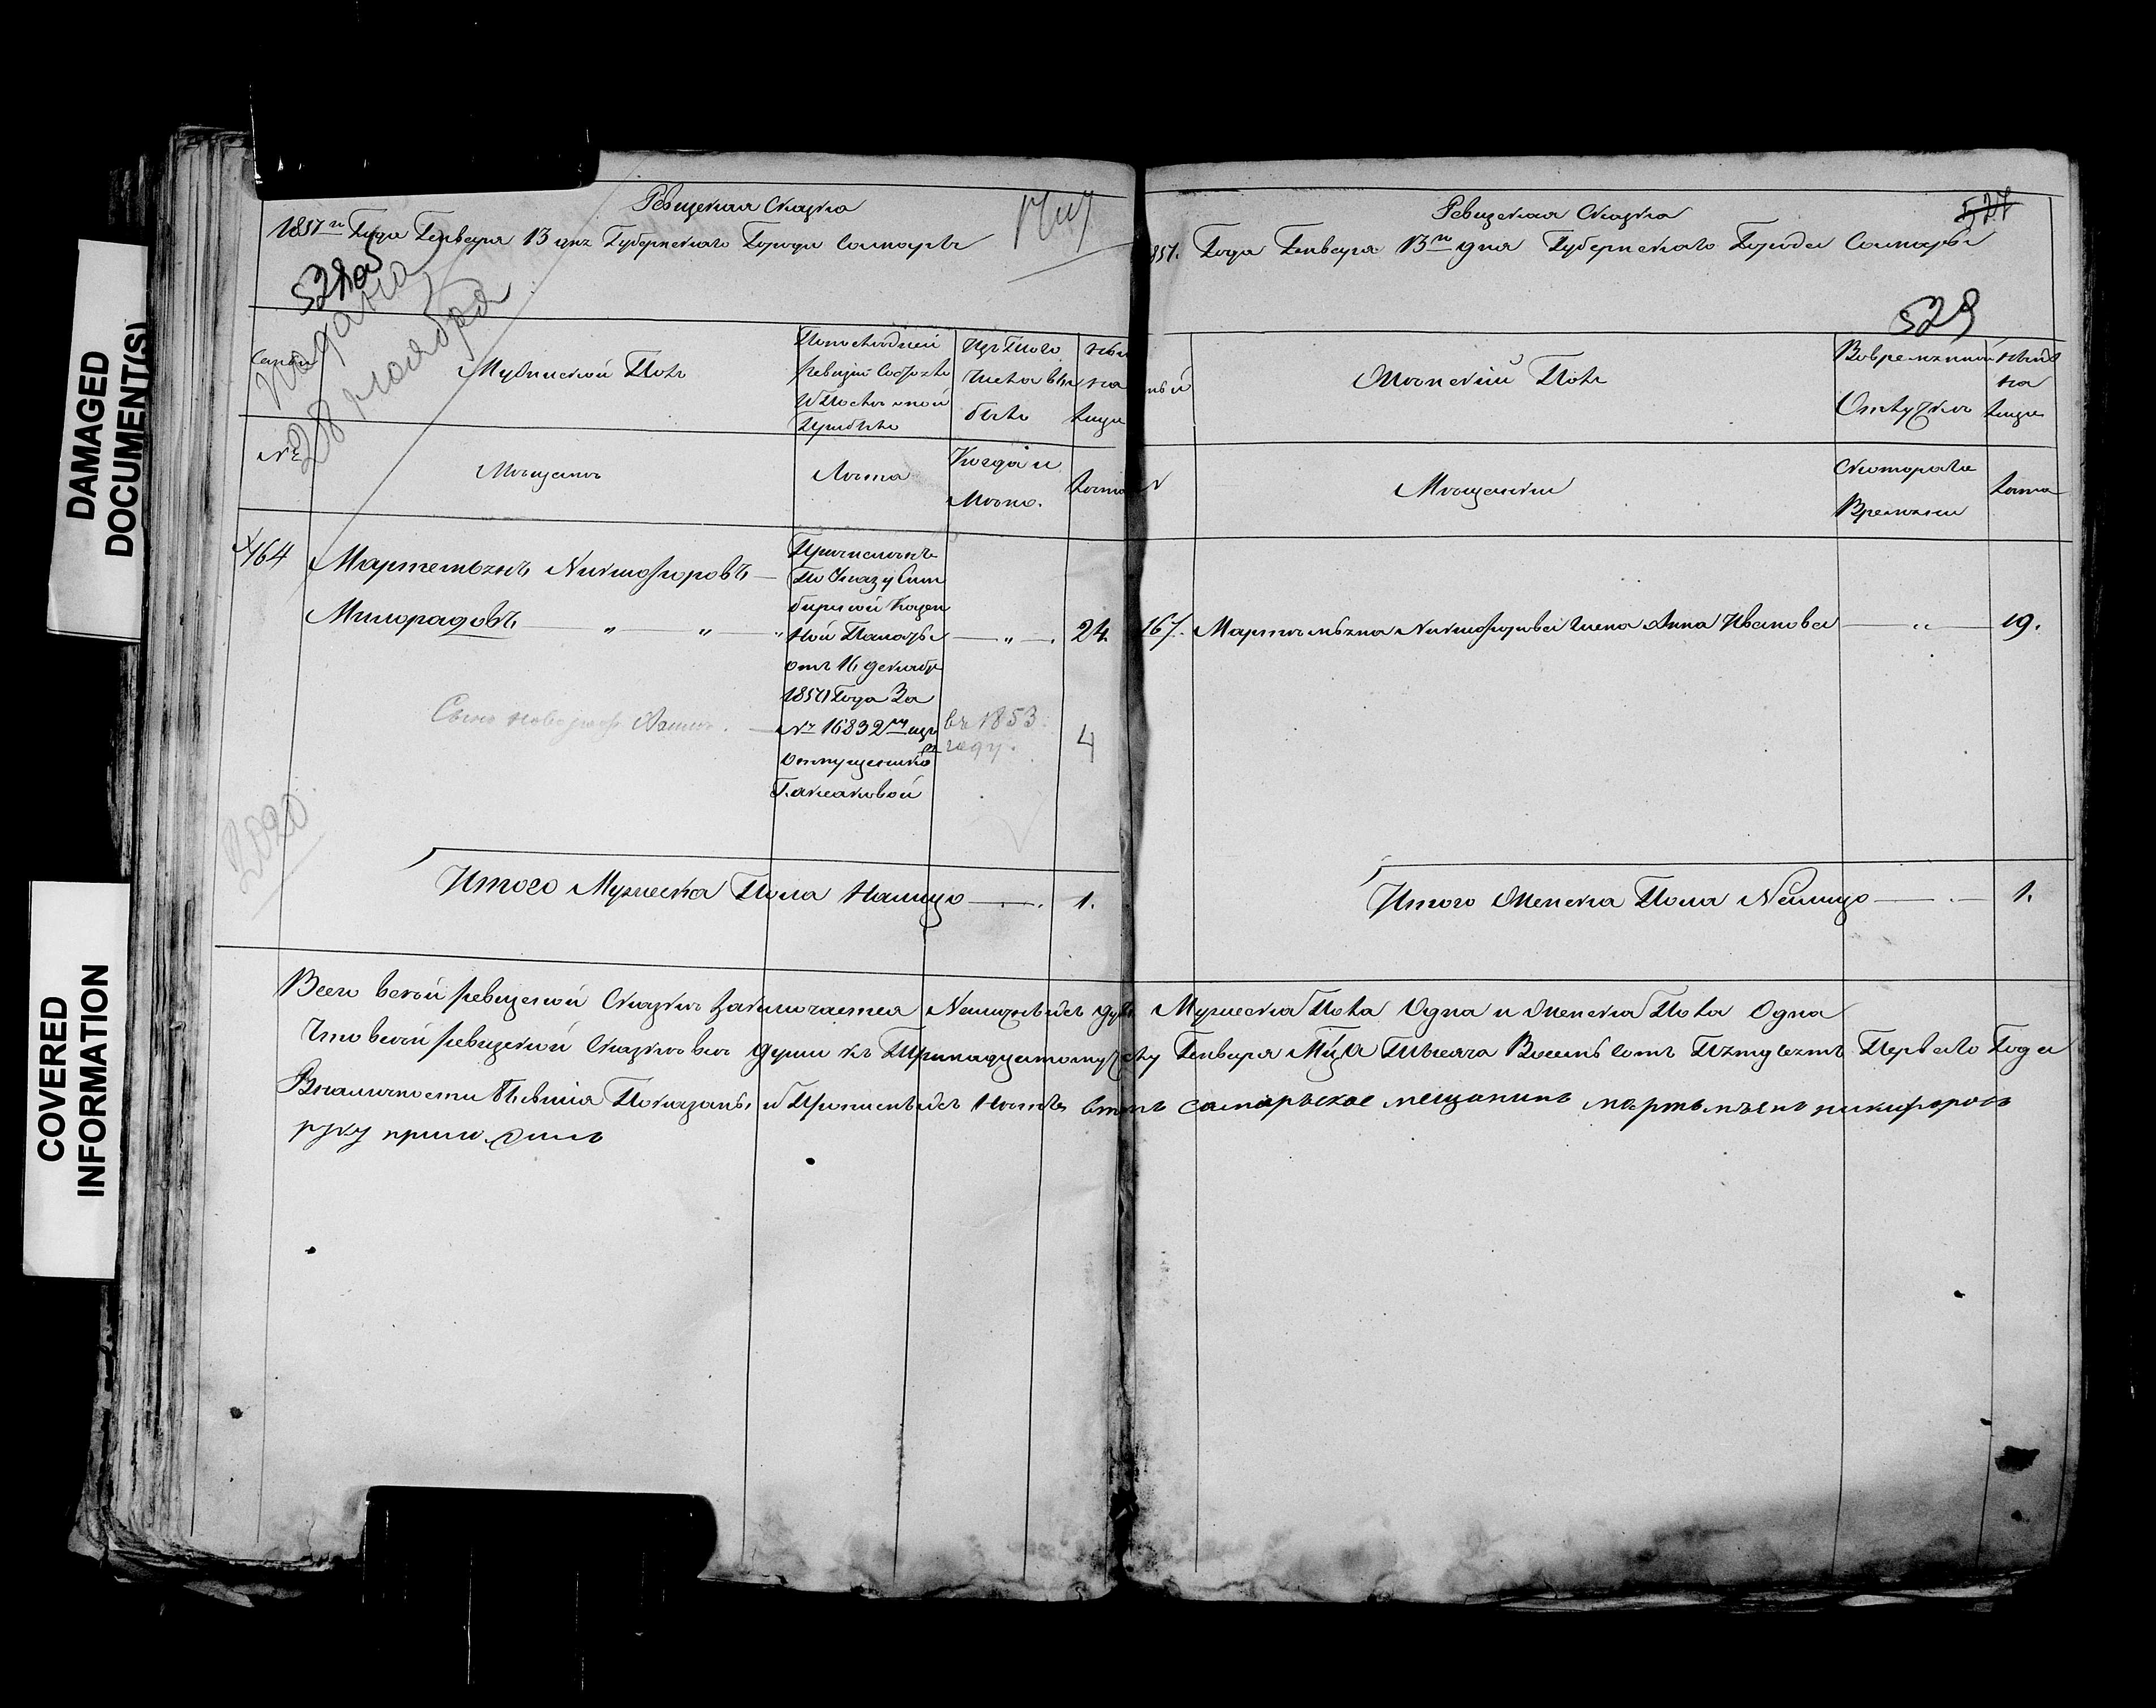 DAMAGED
DOCUMENT(S)
COVERED
INFORMATION
Ревизская Сказка
1851го Года Генваря 13 дня Губернскаго Города Самары
528об
подана
28 ноября
Семьи
Мужеской Полъ
Последней
ревизіи Состояло
И После оной
Прибыло
Изъ Того
числа выбыло
Ныне
на
лицо
№
Мещане
Лета
Когда и
Лета
164
Мартемьянъ Никифоровъ
Милорадовъ
Причисленъ
По Указу Сим
бирской Казен
ной Палаты
отъ 16 декабр
1850 Года За
№ 16832мъ изъ
отпущенико
Г. Аксаковой
24.
Сынъ новорож.
въ 1853
году.
4
2020
Итого Мужеска Пола Налицо
1.
Ревизская Сказка
527
1851. Года Генваря 13го дня Губернскаго Города Самары
529
Женскій Полъ
Вовременной
Отлучке
Ныне
на
лицо
№
Мещанки
Скотораго
Времени
Лета
167. Мартемьяна Никифорова жена Анна Иванова
19.
Итого Женска Пола Налицо
1.
Всего всей ревизской Сказке Заключается Налицо душъ Мужеска Пола Одна и Женска Пола Одна
Что всей ревизской Сказке все души къ Тринадцатому числу Генваря Месяца Тысяча Восемь сотъ Пятдесятъ Перваго Года
Вналичности бывшія Показаны и Прописныхъ Нетъ втомъ самарьской мещанинъ мартемьянъ никифоровъ
руку приложилъ